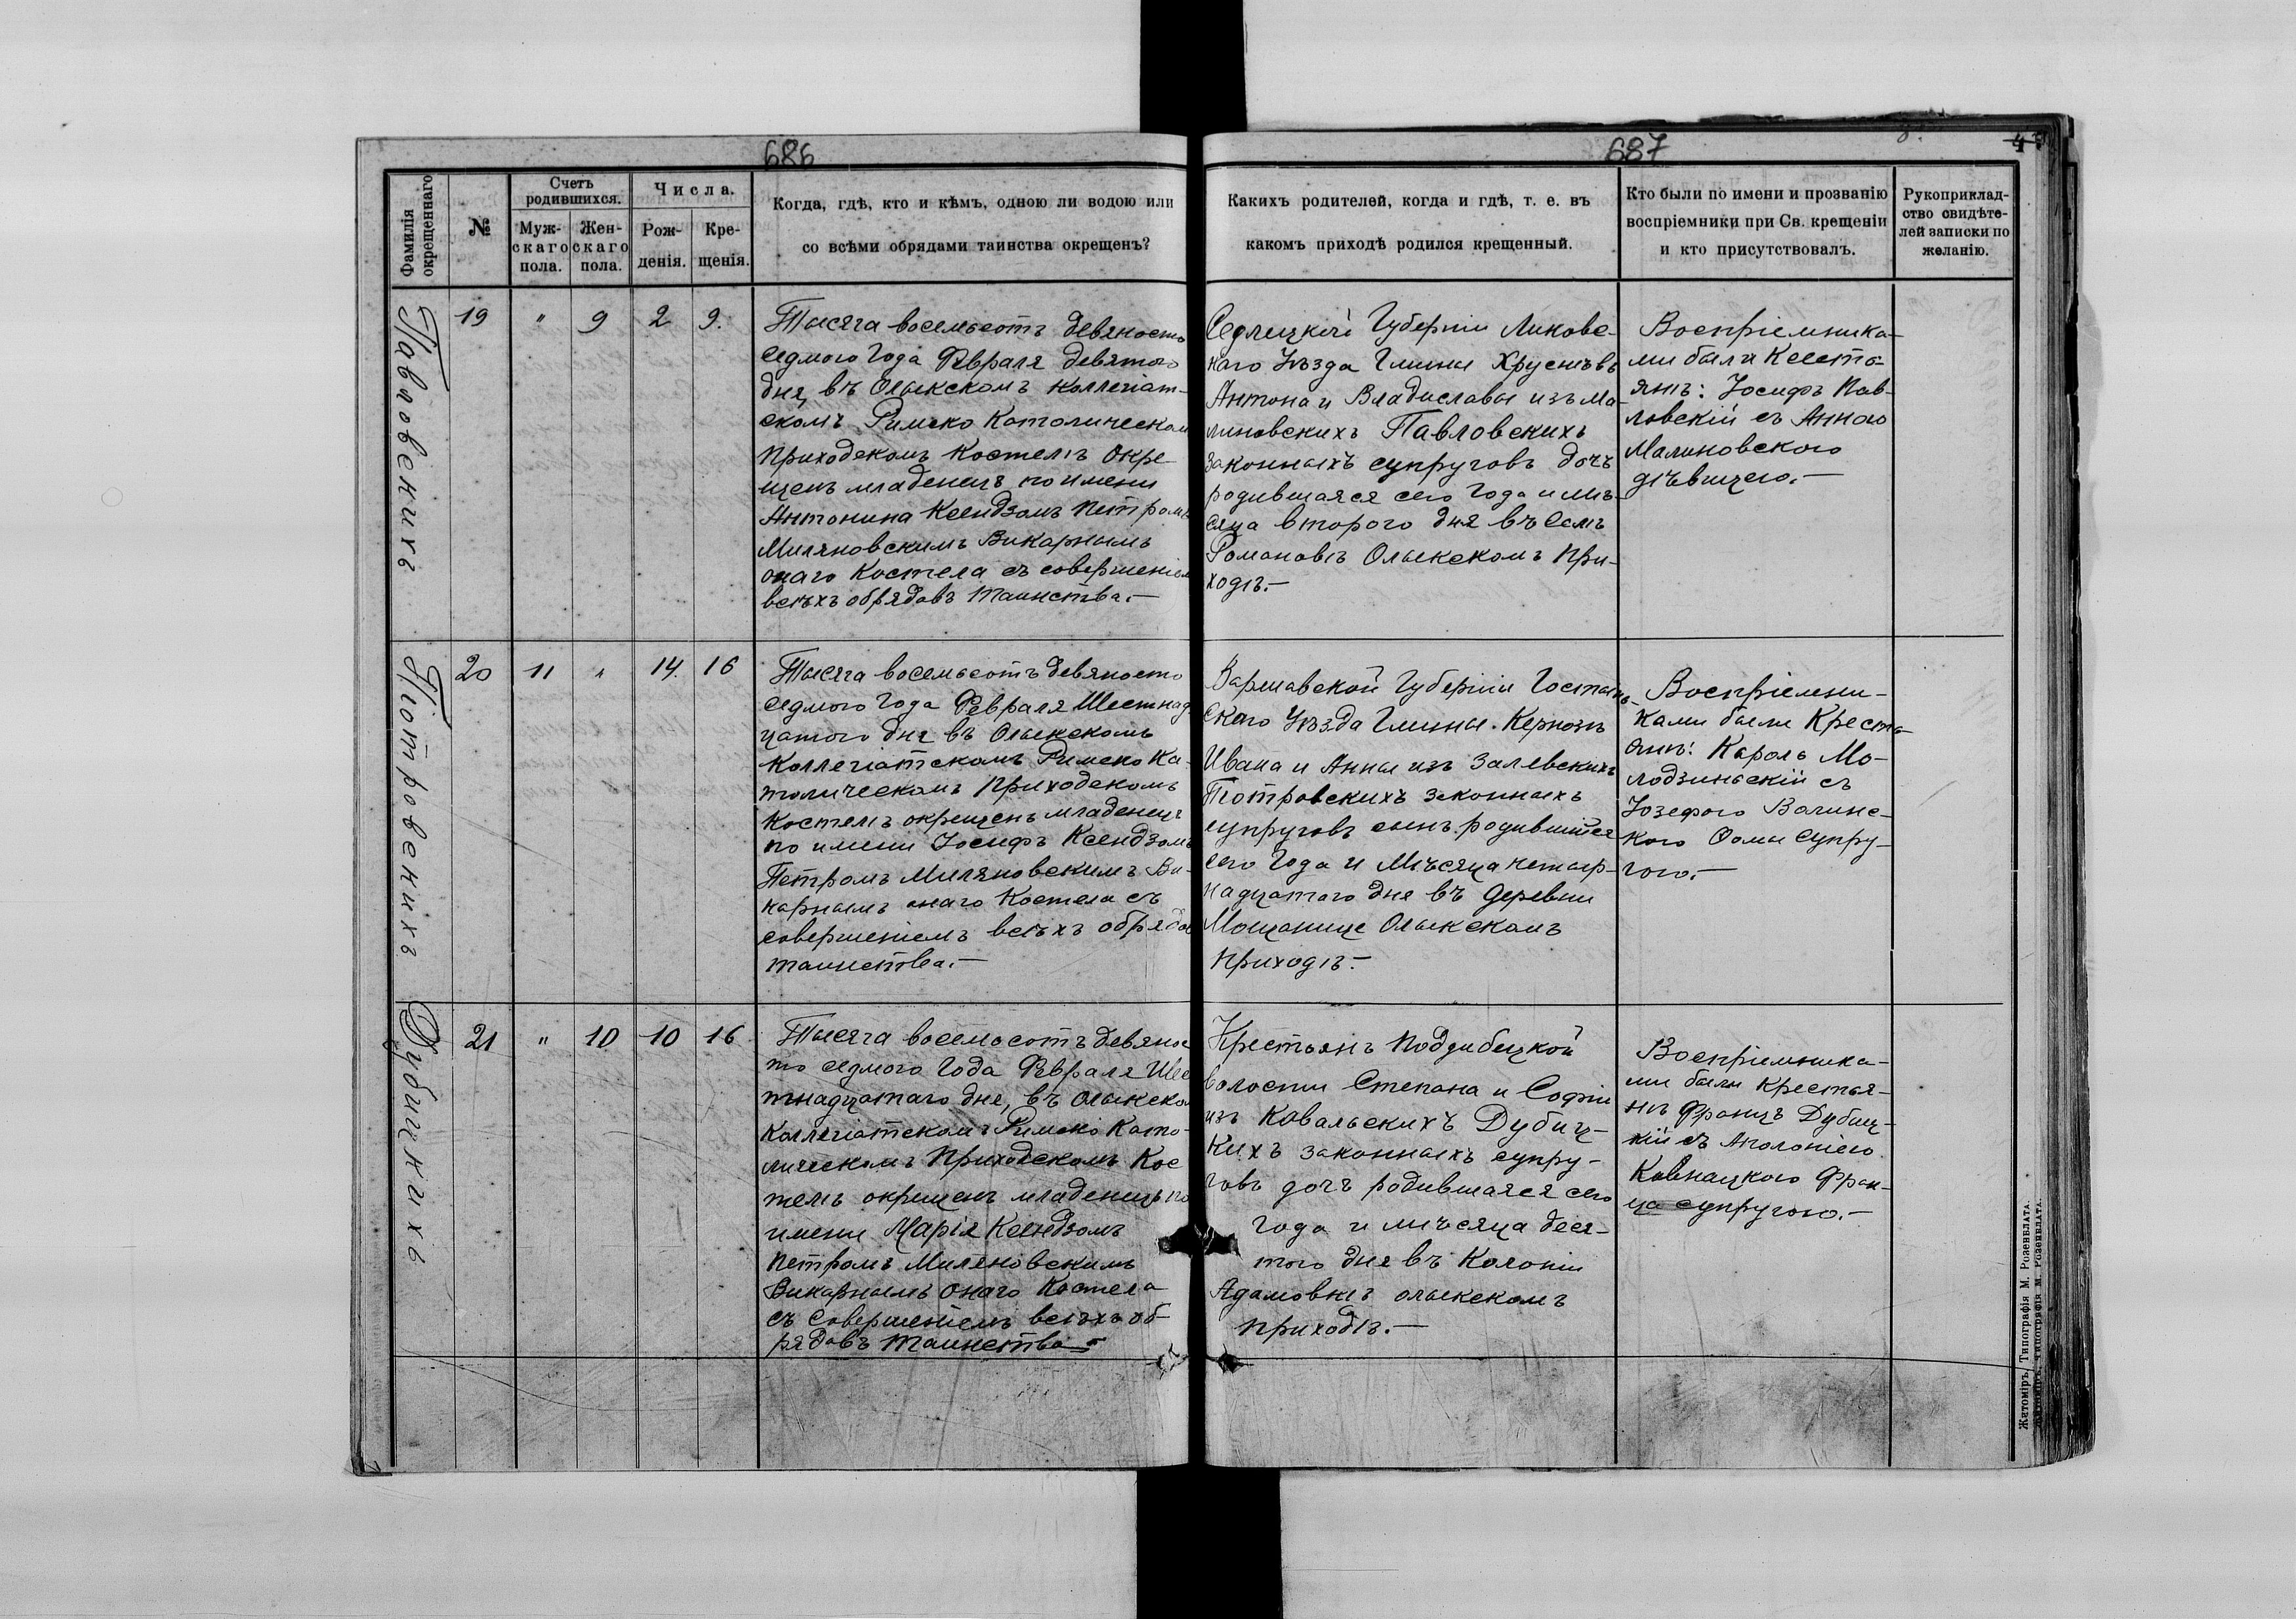 686
Фамилія
окрещеннаго
№
Счетъ
родившихся.
Муж-
скаго
пола.
Жен-
скаго
пола.
Числа.
Рож-
денія.
Кре-
щенія.
Когда, гдѣ, кто и кѣмъ, одною ли водою или
со всѣми обрядами таинства окрещенъ?
687
Какихъ родителей, когда и гдѣ, т. е. въ
какомъ приходѣ родился крещенный.
Кто были по имени и прозванію
воспріемники при Св. крещеніи
и кто присутствовалъ.
Рукоприклад-
ство свидѣте-
лей записки по
желанію.
Павловскихъ
19 " 9 2 9.
Тысяча восемьсотъ девяносто
седмого Года Февраля девятого
дня, въ Олыкскомъ Коллегіат-
скомъ Римско Католическом
Приходскомъ Костелѣ окре-
щенъ младенецъ по имени
Антонина Ксендзомъ Петромъ
Миляновскимъ Викарнымъ
онаго Костела съ совершеніем
всѣхъ обрядовъ таинства.—
Седлецкой Губерніи Луковс-
каго Уѣзда Гмины Хруснѣвъ
Антона и Владиславы изъ Ма-
линовскихъ Павловскихъ
законныхъ супруговъ дочь
родившаяся сего Года и Мѣ-
сяца второго дня въ Селѣ
Романовѣ Олыкскомъ При-
ходѣ.—
Воспріемника-
ми были Кестъ-
янъ: Іосифъ Пав-
ловскій съ Анною
Малиновского
дѣвицею.—
Піотровскихъ
20 11 " 14. 16
Тысяча восемьсотъ девяносто
седмого Года Февраля Шестнад
цатого дня въ Олыкскомъ
Коллегіатскомъ Римско Ка-
толическомъ Приходскомъ
Костелѣ окрещенъ младенецъ
по имени Іосифъ Ксендзомъ
Петромъ Миляновскимъ Ви-
карнымъ онаго Костела съ
совершеніемъ всѣхъ обрядов
таинства.—
Варшавской Губерніи Гостынь-
ского Уѣзда Гмины Кернозъ
Ивана и Анны изъ Залевскихъ
Піотровскихъ законныхъ
супруговъ сынъ родившійся
сего Года и Мѣсяца четыр-
надцатого дня въ Деревни
Мощанице Олыкскомъ
Приходѣ.—
Воспріемни-
ками были Кресть-
янъ: Кароль Мо-
лодзиньскій съ
Юзефого Валинс-
кого Ѳомы супру-
гого.—
Дубицкихъ
21 " 10 10 16
Тысяча восемьсотъ девянос
то седмого Года Февраля Шес
тнадцатаго дня, въ Олыкском
Коллегіатскомъ Римско Като-
лическомъ Приходскомъ Кос
телѣ окрещенъ младенецъ по
имени Марія Ксендзомъ
Петромъ Миляновскимъ
Викарнымъ онаго Костела
съ совершеніемъ всѣхъ об-
рядовъ таинства.
Крестьянъ Поддубецкой
волости Степана и Софіи
изъ Ковальскихъ Дубиц-
кихъ законныхъ супру-
говъ дочъ родившаяся сего
Года и мѣсяца деся-
того дня въ Колоніи
Адамовкѣ олыкскомъ
приходѣ.—
Воспріемника-
ми были крестья-
нъ Францъ Дубиц-
кій съ Аполоніею
Ковнацкого Фран-
ца супругою.—
Житоміръ, Типографія М. Розенблата.